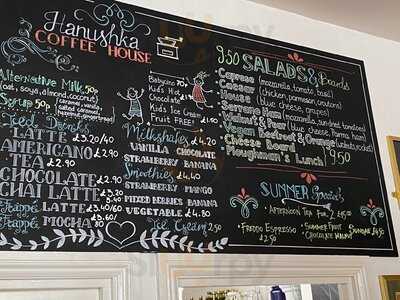 Hanushka
COFFEE HOUSE
Alternative Milk 50p
(oat, soya, almond, coconut)
Syrup 50p
(caramel, vanilla,
salted caramel
Iced Drinks
LATTE £3.20/40
AMERICANO £2.90
TEA £2.90
CHOCOLATE £2.90
CHAI LATTE £3.20
Frappé LATTE £3.40/60
Frappé MOCHA £3.80
Babycino 70p
Kids Hot
Chocolate £1.90
Kids Ice
Cream £1.90
Fruit FREE!
Milkshakes £4.20
VANILLA CHOCOLATE
STRAWBERRY BANANA
Smoothies £4.40
STRAWBERRY MANGO
MIXED BERRIES BANANA
VEGETABLE £4.80
Ice Cream 2.50
9.50 SALADS & Boards
Caprese (mozzarella, tomato, basil)
Caesar (chicken, parmesan, croutons)
House (blue cheese, grapes)
Serrano Ham (mozzarella, sundried tomatoes)
Walnut & Pear (blue cheese, Parma ham)
Vegan Beetroot & Orange
Cheese Board
Ploughman's Lunch 9.50
SUMMER Specials
AFTERNOON TEA FOR 2 £45.00
FREDDO ESPRESSO
£2.50
SUMMER FRUIT
CHOCOLATE WALNUT
SUNDAE £4.50